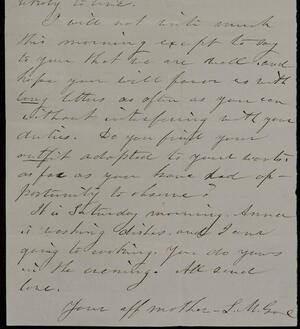 to live.
I will not write much
this morning except to say
to your that we are well, and
hope you will favor us with
long letters as often as you can
without interfering with your
duties. Do you find your
outfit adapted to your work
as far as you have had op-
portunity to observe?
It is Saturday morning. Anna
is washing dishes, and I am
going to You do yours
in the evening. All send
love.
Your aff mother - S. M.